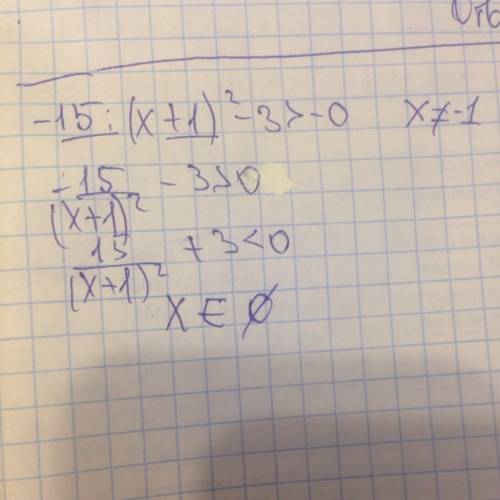 -15 : (x+1)² - 3 > -0 x ≠ -1
-15/(x+1)² - 3 > 0
15/(x+1)² + 3 < 0
x ∈ ∅